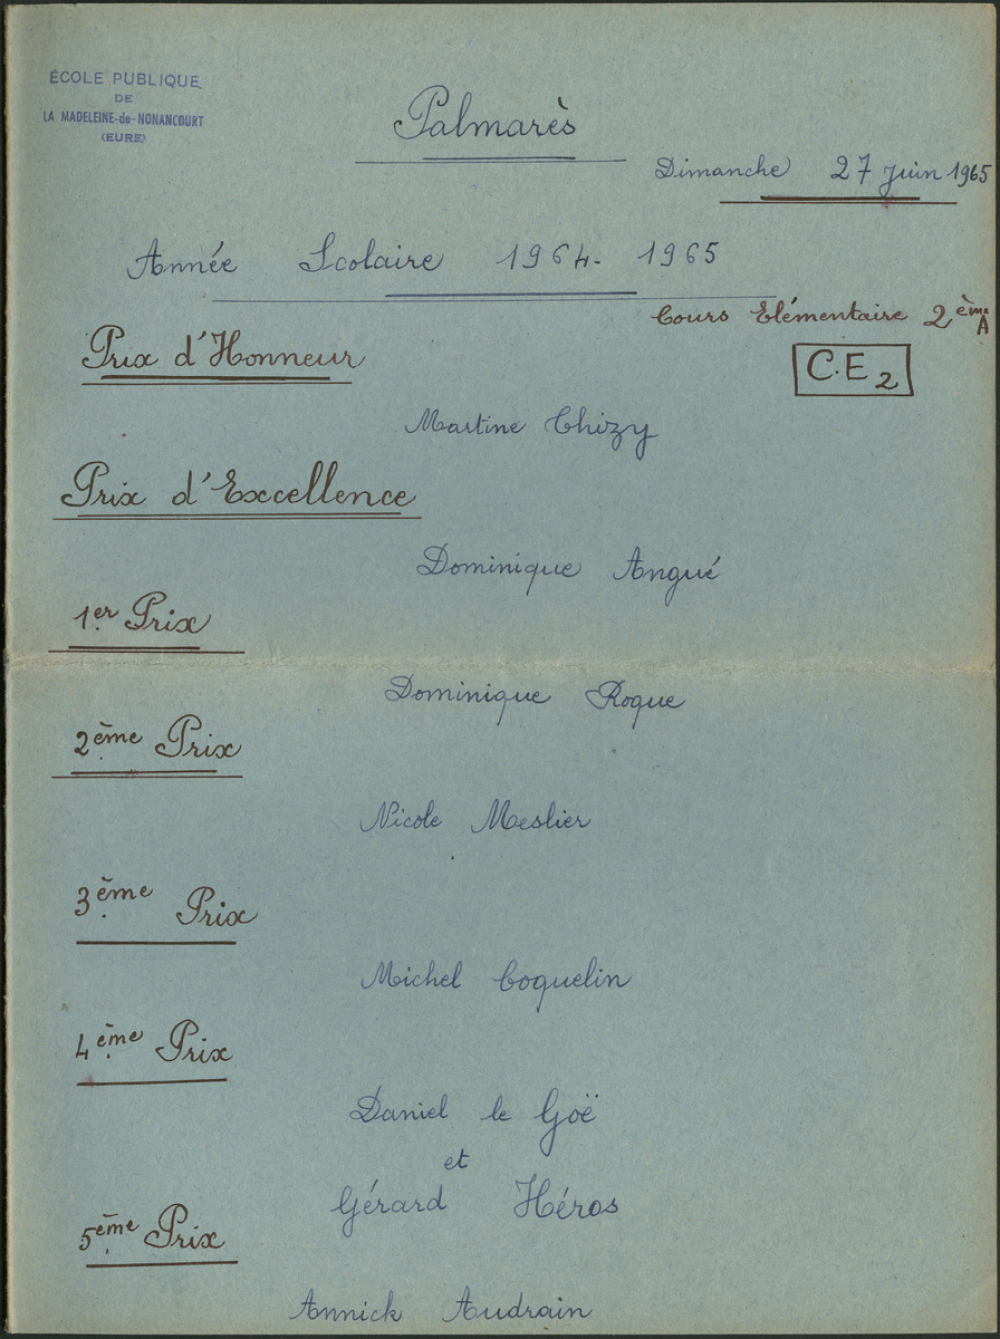 ÉCOLE PUBLIQUE
DE
LA MADELEINE-de-NONANCOURT
(EURE)
Palmarès
Dimanche 27 Juin 1965
Année Scolaire 1964-1965
Cours Elémentaire 2ème A
Prix d'Honneur
C.E2
Martine Chizy
Prix d'Excellence
Dominique Angué
1er Prix
Dominique Roque
2ème Prix
Nicole Meslier
3ème Prix
Michel Coquelin
4ème Prix
Daniel le Goë
et
Gérard Héros
5ème Prix
Annick Audrain